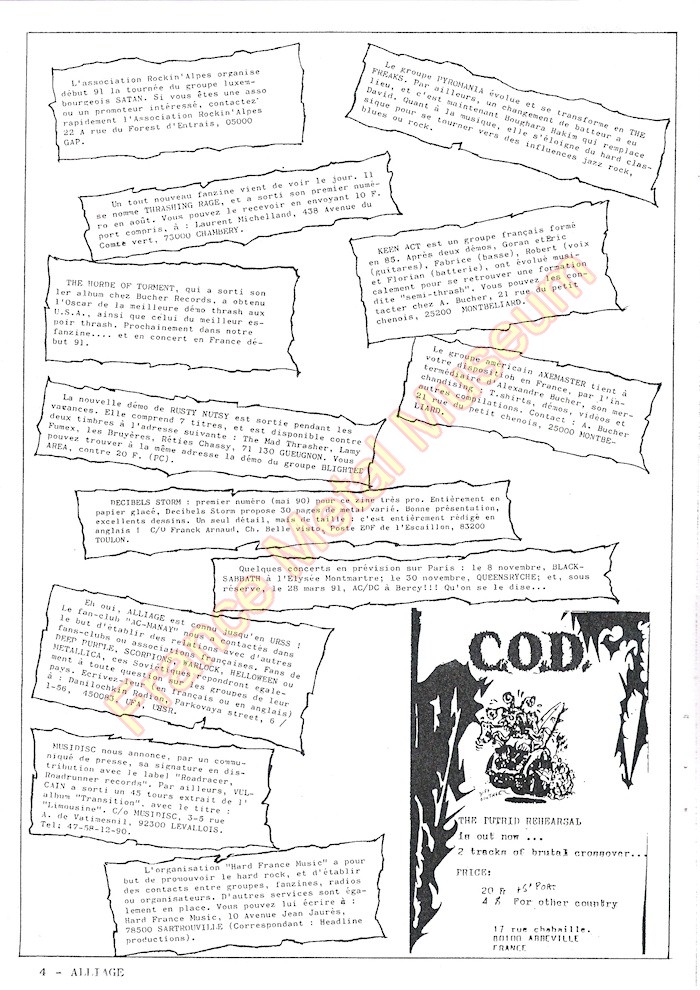 L'association Rockin'Alpes organise
début 91 la tournée du groupe luxem-
bourgeois SATAN. Si vous êtes une asso
ou un promoteur intéressé, contactez'
rapidement l'Association Rockin'Alpes
22 A rue du Forest d'Entrais, 05000
GAP.
Le groupe PYROMANIA évolue et se transforme en THE
FREAKS. Par ailleurs, un changement de batteur a eu
lieu, et c'est maintenant Boughara Hakim qui remplace
David. Quant à la musique, elle s'éloigne du hard clas-
sique pour se tourner vers des influences jazz rock,
blues ou rock.
Un tout nouveau fanzine vient de voir le jour. Il
se nomme THRASHING RAGE, et a sorti son premier numé-
ro en août. Vous pouvez le recevoir en envoyant 10 F.
port compris, à : Laurent Michelland, 438 Avenue du
Comte vert, 73000 CHAMBERY.
KEEN ACT est un groupe français formé
en 85. Après deux démos, Goran et Eric
(guitares), Fabrice (basse), Robert (voix
et Florian (batterie), ont évolué musi-
calement pour se retrouver une formation
dite "semi-thrash". Vous pouvez les con-
tacter chez A. Bucher, 21 rue du petit
chenois, 25200 MONTBELIARD.
THE HORDE OF TORMENT, qui a sorti son
1er album chez Bucher Records, a obtenu
l'Oscar de la meilleure démo thrash aux
U.S.A., ainsi que celui du meilleur es-
poir thrash. Prochainement dans notre
fanzine.... et en concert en France dé-
but 91.
Le groupe américain AXEMASTER tient à
votre disposition en France, par l'in-
termédiaire d'Alexandre Bucher, son mer-
chandising : T.shirts, démos, vidéos et
autres compilations. Contact : A. Bucher
21 rue du petit chenois, 25000 MONTBE-
LIARD.
La nouvelle démo de RUSTY NUTSY est sortie pendant les
vacances. Elle comprend 7 titres, et est disponible contre
deux timbres à l'adresse suivante : The Mad Thrasher, Lamy
Fumex, les Bruyères, Réties Chassy, 71 130 GUEUGNON. Vous
pouvez trouver à la même adresse la démo du groupe BLIGHTED
AREA, contre 20 F. (PC).
DECIBELS STORM : premier numéro (mai 90) pour ce zine très pro. Entièrement en
papier glacé, Decibels Storm propose 30 pages de metal varié. Bonne présentation,
excellents dessins. Un seul détail, mais de taille : c'est entièrement rédigé en
anglais ! C/O Franck Arnaud, Ch. Belle visto, Poste EDF de l'Escaillon, 83200
TOULON.
Quelques concerts en prévision sur Paris : le 8 novembre, BLACK-
SABBATH à l'Elysée Montmartre; le 30 novembre, QUEENSRYCHE; et, sous
réserve, le 28 mars 91, AC/DC à Bercy!!! Qu'on se le dise...
Eh oui, ALLIAGE est connu jusqu'en URSS !
Le fan-club "AC-NANAY" nous a contactés dans
le but d'établir des relations avec d'autres
fans-clubs ou associations françaises. Fans de
DEEP PURPLE, SCORPIONS, WARLOCK, HELLOWEEN ou
METALLICA, ces Soviétiques répondront égale-
ment à toute question sur les groupes de leur
pays. Ecrivez-leur (en français ou en anglais)
à : Danilochkin Rodion, Parkovaya street, 6 /
1-56, 450083. UFA, URSR.
MUSIDISC nous annonce, par un commu-
niqué de presse, sa signature en dis-
tribution avec le label "Roadracer,
Roadrunner records". Par ailleurs, VUL-
CAIN a sorti un 45 tours extrait de l'
album "Transition", avec le titre :
"Limousine". C/o MUSIDISC, 3-5 rue
A. de Vatimesnil, 92300 LEVALLOIS.
Tel: 47-58-12-90.
L'organisation "Hard France Music" a pour
but de promouvoir le hard rock, et d'établir
des contacts entre groupes, fanzines, radios
ou organisateurs. D'autres services sont éga-
lement en place. Vous pouvez lui écrire à :
Hard France Music, 10 Avenue Jean Jaurès,
78500 SARTROUVILLE (Correspondant : Headline
productions).
C.O.D.
THE PUTRID REHEARSAL
Is out now ...
2 tracks of brutal crossover...
PRICE:
20 Fr +5F PORT
4 $ For other country
17 rue chabaille.
80100 ABBEVILLE
FRANCE
4 - ALLIAGE
France Metal Museum